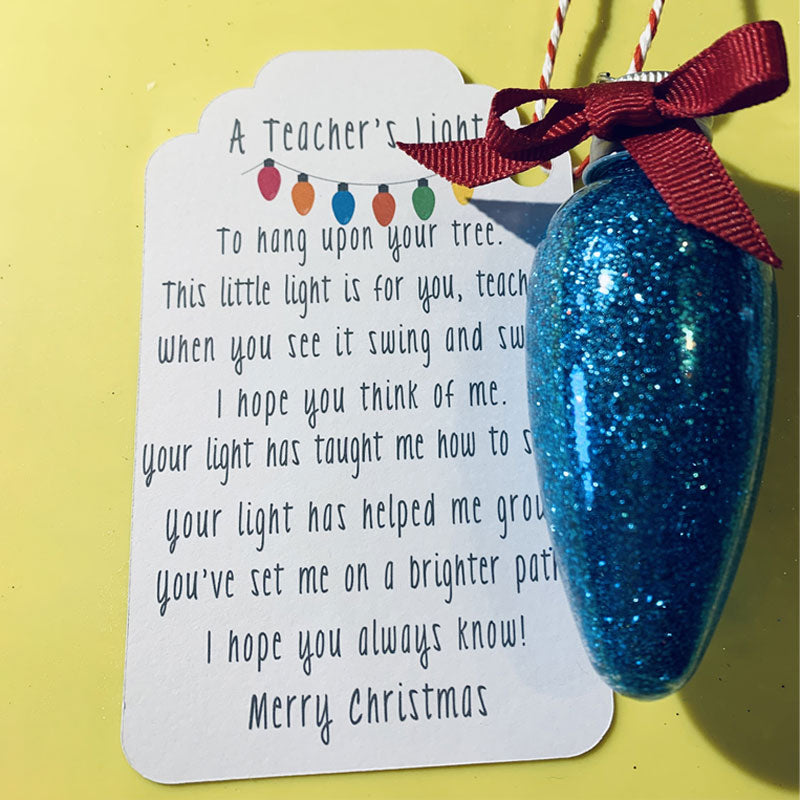 A Teacher's Light
To hang upon your tree.
This little light is for you, teach
When you see it swing and sw
I hope you think of me.
Your light has taught me how to s
Your light has helped me grow
You've set me on a brighter path
I hope you always know!
Merry Christmas